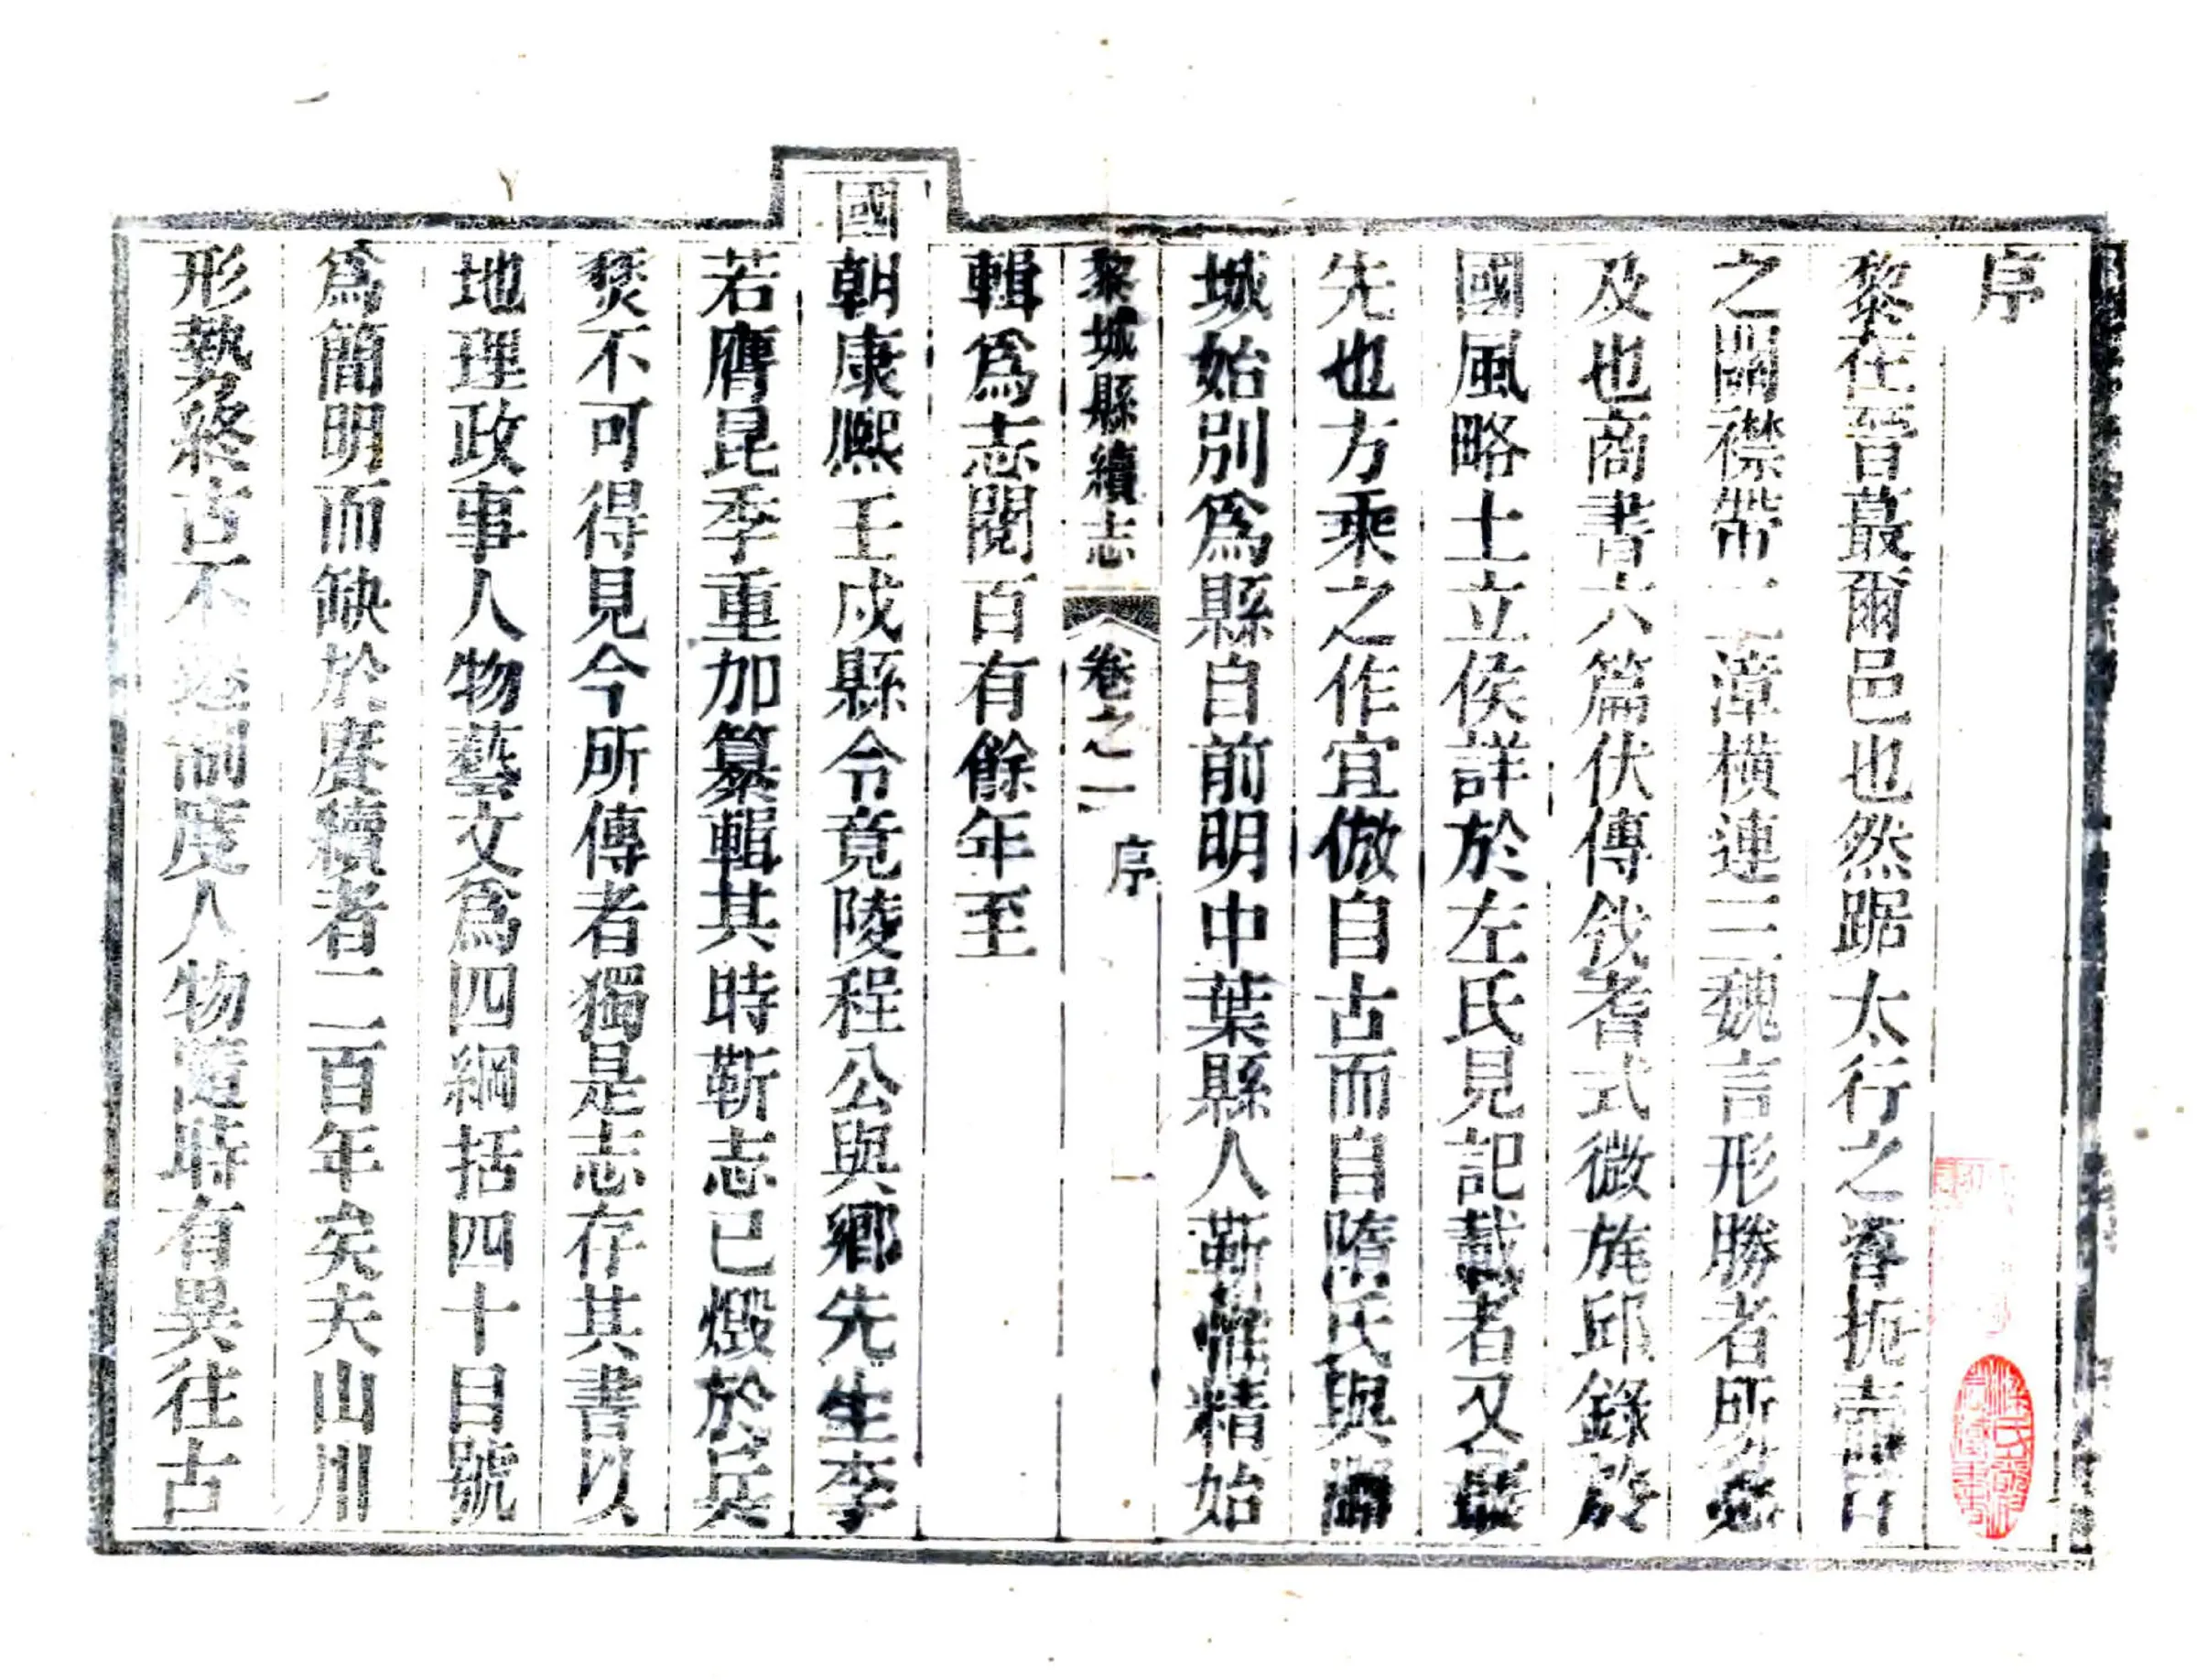 序
黎在晉蕞爾邑也然踞太行之脊扼壺口
之關襟帶二漳橫連三魏言形勝者所必
及也商書六篇伏傳戗耆式微旄邱錄於
國風略土立侯詳於左氏見記載者又最
先也方乘之作宜倣自古而自隋氏與潞
城始別爲縣自前明中葉縣人靳惟精始
輯爲志閱百有餘年至
黎城縣續志 卷之一 序 一
國朝康熙壬戌縣令竟陵程公與鄉先生李
若膺昆季重加纂輯其時靳志已燬於兵
燹不可得見今所傳者獨是志存其書以
地理政事人物藝文爲四綱括四十目號
爲簡明而缺於賡續者二百年矣夫山川
形埶終古不 制度人物隨時有異往古